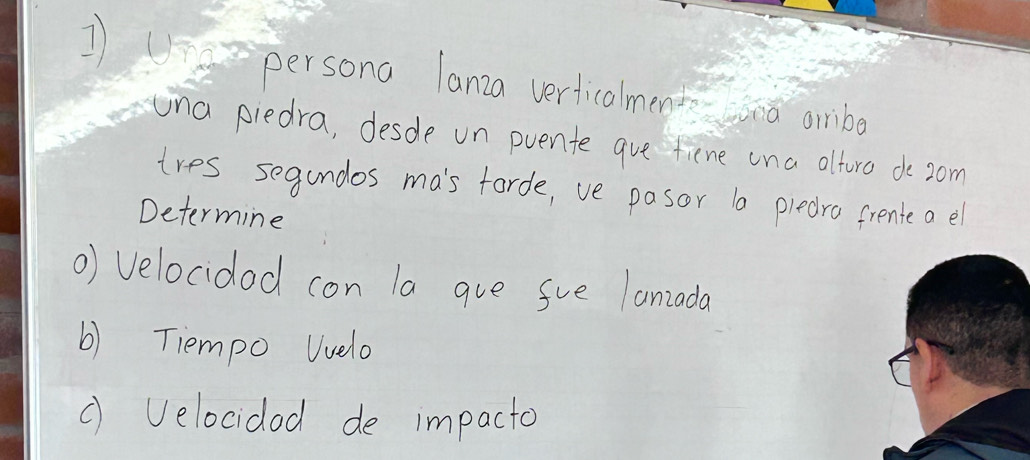 1) Una persona lanza verticalmente hacia arriba
una piedra, desde un puente que tiene una altura de 20m
tres segundos más tarde, ve pasar la piedra frente a el
Determine
a) Velocidad con la que fue lanzada
b) Tiempo Vuelo
c) Velocidad de impacto